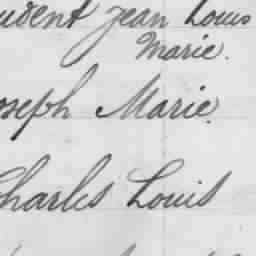 udent Jean Louis
Marie.
oseph Marie.
Charles Louis